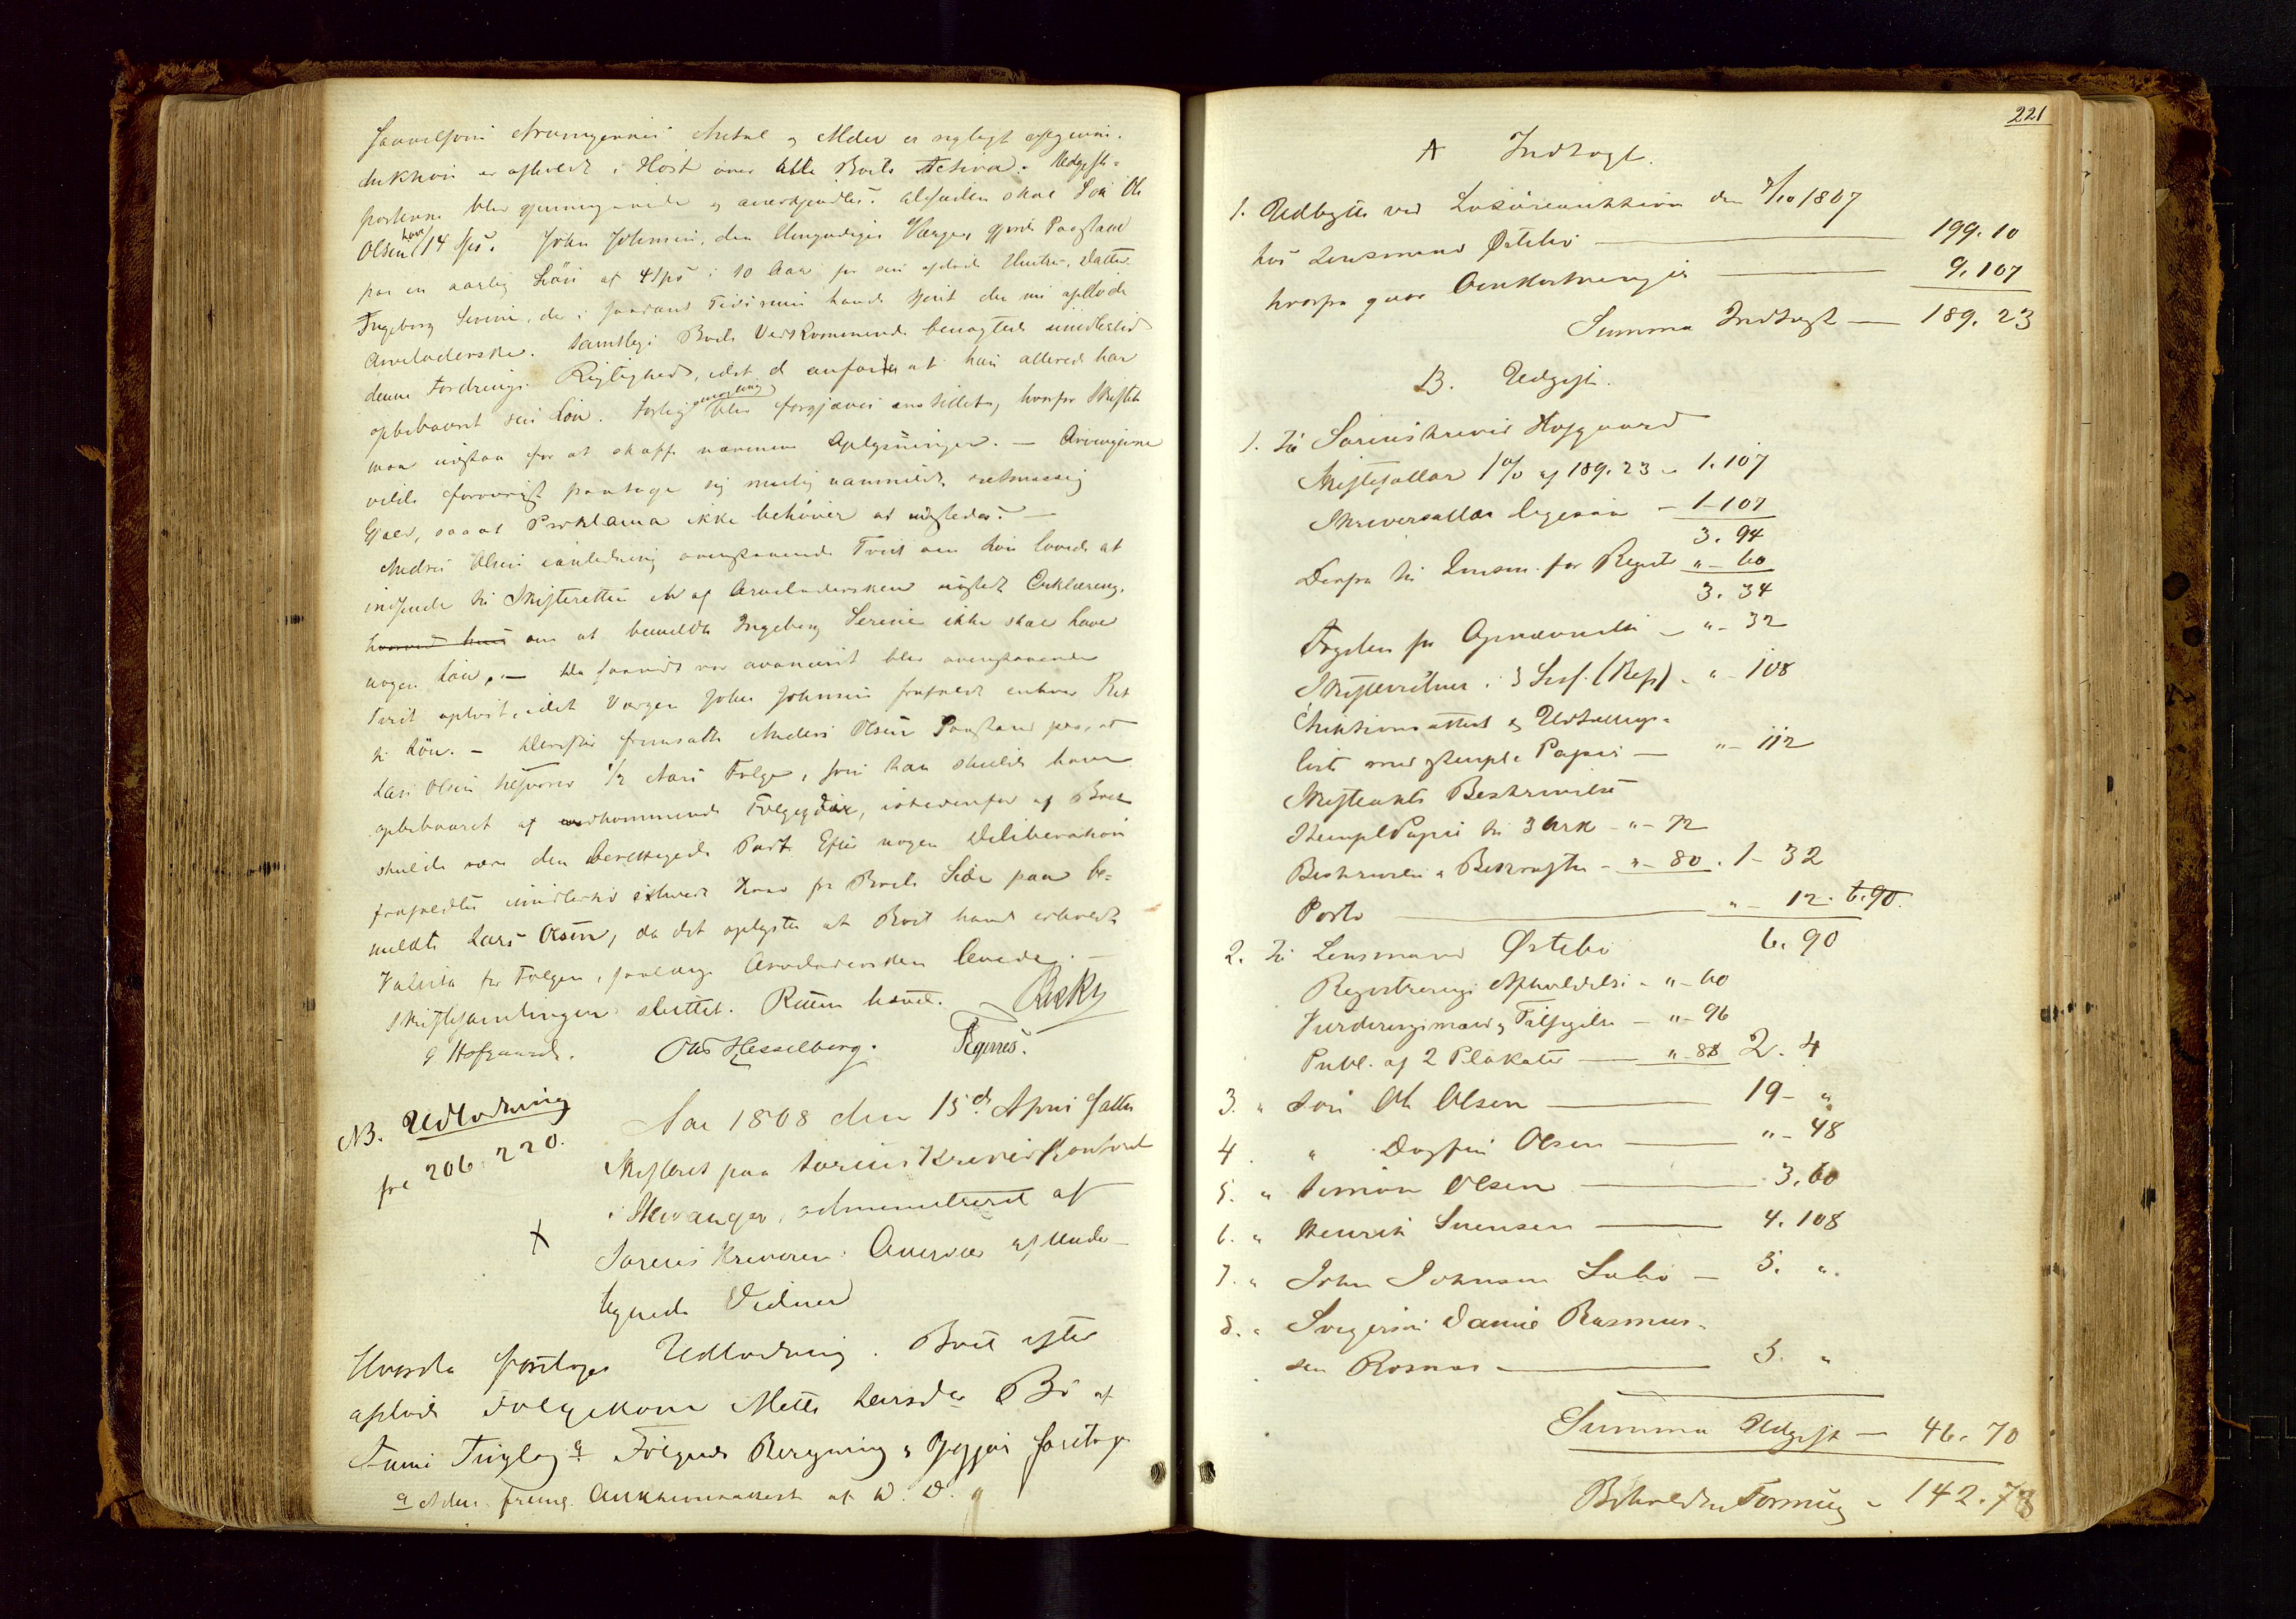 saavelsom Arvingernes Antal og Alder er rigtigt opgivne.
Auktion er afholdt i Høst over alle Boets Activa. Udgifts-
posterne blev gjennemgaaede og anerkjendte. Afsides skal Lars Ole
Olsen have 14 Spd. John Johnsen, den Umyndiges Værge, gjorde Paastand
paa en aarlig Løn af 4 Spd i 10 Aar for sin afdøde Hustrus Datter
Ingeborg Serine, der i saadant Tidsrum havde tjent den nu afdøde
Arveladerske. Samtlige Boets Vedkommende benægtede imidlertid
denne Fordrings Rigtighed, idet de anførte at hun allerede har
opbebaaret sin Løn. Forligsmægling blev forgjæves anstillet, hvorfor Skiftet
maa udstaa for at skaffe nærmere Oplysninger. — Arvingerne
vilde forøvrigt paatage sig
Gjæld, saa at Proklama ikke behøver at udstedes. —
Anders Olsen i anledning ovenstaaende Tvist om Løn lovede at
indsende til Skifteretten en af Arveladersken udstedt Erklæring,
om at bemeldte Ingeborg Serine ikke skal have
nogen Løn. — Da saavidt var avanceret blev ovenstaaende
Tvist opløst, idet Værgen John Johnsen frafaldt enhver Ret
til Løn. — Derefter fremsatte Anders Olsen Paastand paa, at
Lars Olsen tilsvarer 1/2 Aars Følge, som han skulde have
opbebaaret af vedkommende Følgeyder, istedenfor at Boet
skulde være den berettigede Part. Efter nogen Deliberation
frafaldtes imidlertid ethvert Krav fra Boets Side paa be-
meldte Lars Olsen, da det oplystes at Boet havde erholdt
Valuta for Følgen, saalænge Arveladersken levede. —
Skiftesamlingen sluttet. Retten hævet.
G Hofgaard. Ole Hesselberg.
NB. Udlodning
fra 206. 220.
Aar 1868 den 15de April sattes
Skifteret paa Sorenskriverkontoret
i Stavanger, administreret af
Sorenskriveren. Overvær af Under-
tegnede Vidner
Hvorda foretoges Udlodning i Boet efter
afdøde Følgekone Mette Larsdr Bø af
Tinglag a Følgende Beregning og Opgjør foretoges
a Aden. fremlg. Auktionsattest af d. D.
221
A Indtægt.
1. Udbytte ved Løsøreauktion den 7/10 1867
hos Lensmand Østebø — 199. 10
hvorfra gaar Omkostninger — 9. 107
Summa Indtægt — 189. 23
B. Udgift.
1. Til Sorenskriver Hofgaard
Skiftesallar 1 % af 189. 23 - 1. 107
Skriversallar ligesaa - 1-107
3. 94
Derfra til Lensm. for Registr " - 60
3. 34
Fogden for Opnævnelse - " - 32
Skiftevidner i 3 Sess. (Resp) - " - 108
Auktionsattest og Udtællings-
liste med stempl. Papir — " - 112
Skifteakts Beskrivelse
StempletPapir til 3 Ark - " - 72
Beskrivelse & Bekræftn - " - 80. 1 - 32
Porto — " - 12. 6.90.
6. 90
2. Til Lensmand Østebø
Registrerings Afholdelse - " - 60
Vurderingsmænd Tilsigelse — " - 96
Publ. af 2 Plakater — " - 88 2. 4
3. " Lars Ole Olsen — 19 - "
4. " Dagfin Olsen — " - 48
5. " Simon Olsen — 3. 60
6. " Henrik Svensen — 4. 108
7. " John Johnsen Sæbø — 5. ".
8. " Svigersøn Daniel Rasmus-
sen Rosnes — 5. "
Summa Udgift — 46. 70
Beholden Formue - 142. 73